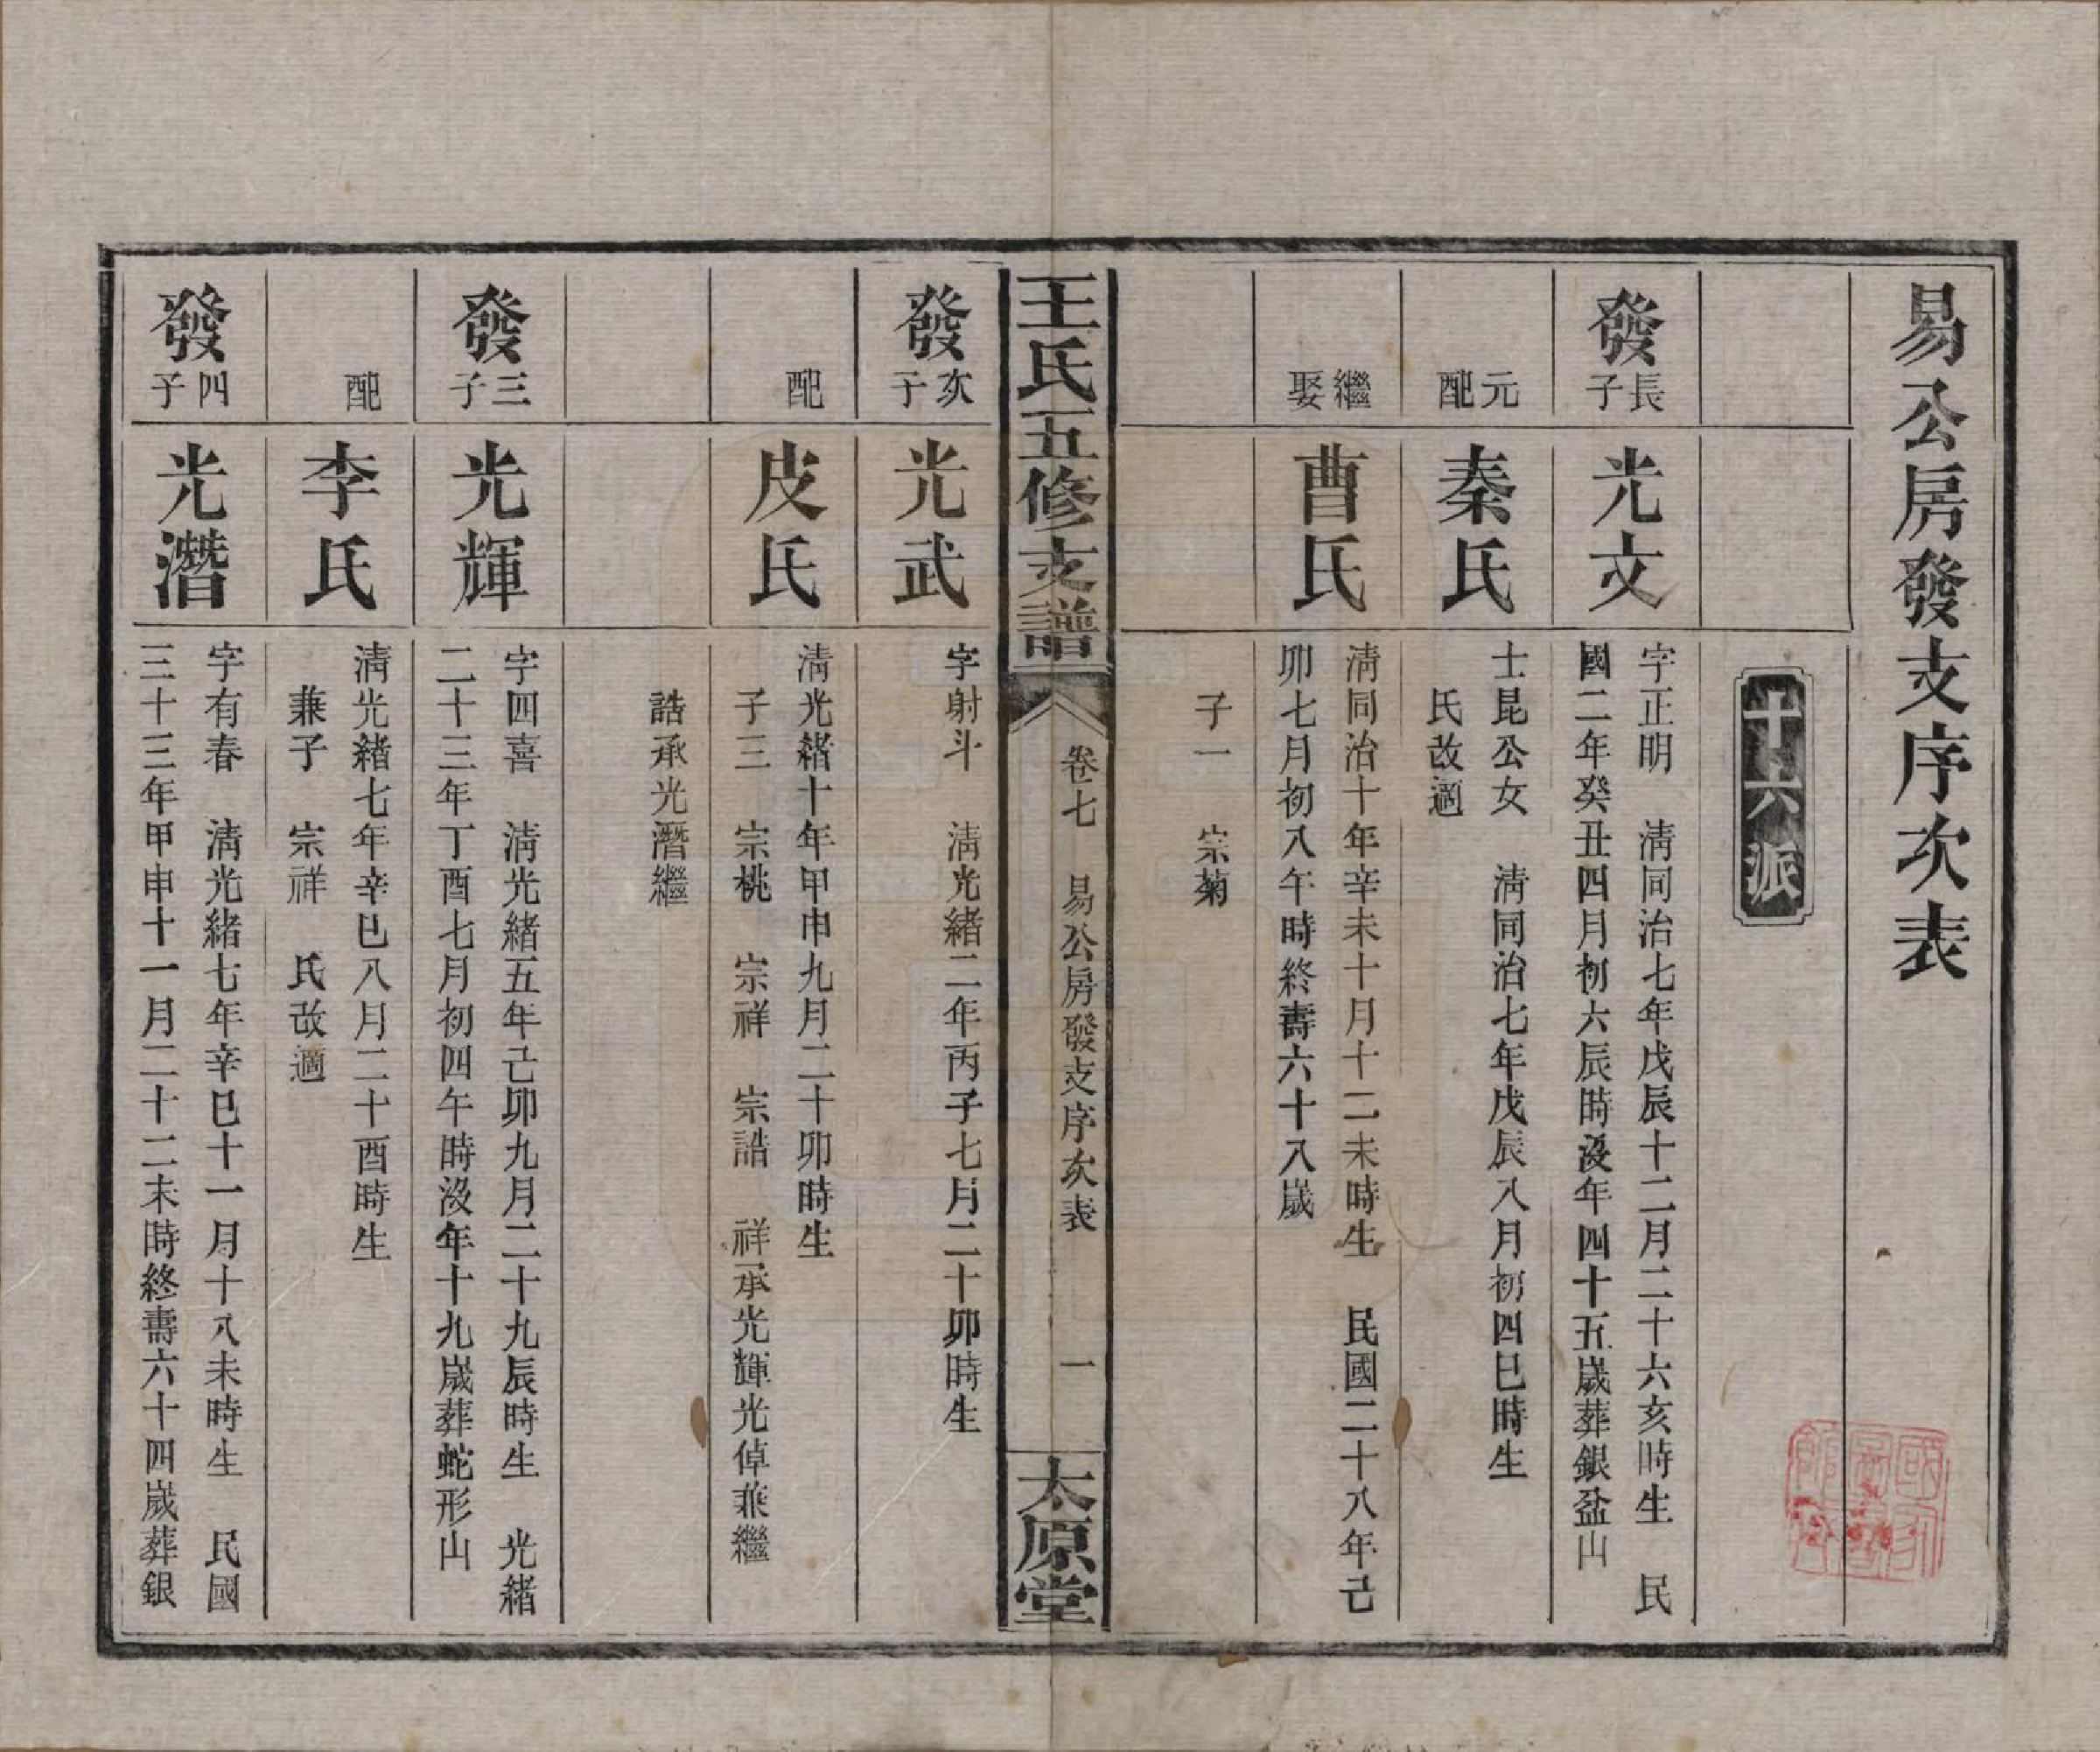 易公房發支序次表
十六派
發長子
光文
字正明　清同治七年戊辰十二月二十六亥時生　民
國二年癸丑四月初六辰時沒年四十五歲葬銀盆山
元配
秦氏
士昆公女　清同治七年戊辰八月初四巳時生
氏改適
繼娶
曹氏
清同治十年辛未十月十二未時生　民國二十八年己
卯七月初八午時終壽六十八歲
子一　宗菊
王氏五修支譜
卷七　易公房發支序次表　一
太原堂
發次子
光武
字射斗　清光緒二年丙子七月二十卯時生
配
皮氏
清光緒十年甲申九月二十卯時生
子三　宗桃　宗祥　宗誥　祥承光輝光倬兼繼
誥承光潛繼
發三子
光輝
字四喜　清光緒五年己卯九月二十九辰時生　光緒
二十三年丁酉七月初四午時沒年十九歲葬蛇形山
配
李氏
清光緒七年辛巳八月二十酉時生
兼子　宗祥　氏改適
發四子
光潛
字有春　清光緒七年辛巳十一月十八未時生　民國
三十三年甲申十一月二十二未時終壽六十四歲葬銀